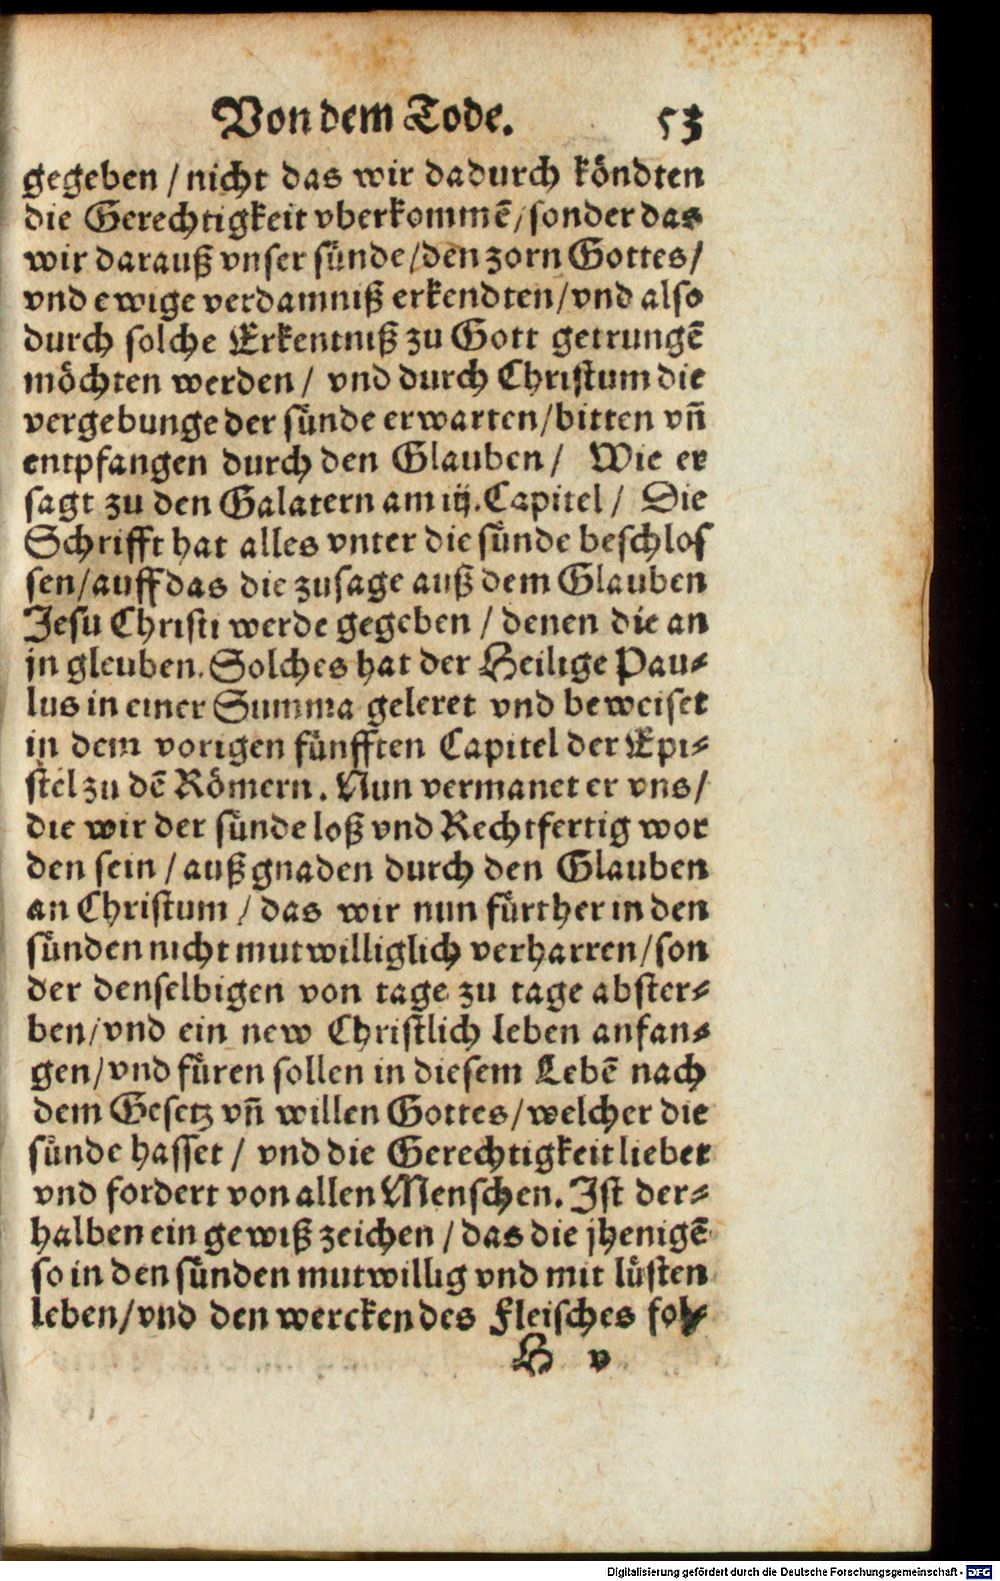 Von dem Tode. 53
gegeben / nicht das wir dadurch köndten
die Gerechtigkeit vberkommē / sonder das
wir darauß vnser sünde / den zorn Gottes /
vnd ewige verdamniß erkendten / vnd also
durch solche Erkentniß zu Gott getrungē
möchten werden / vnd durch Christum die
vergebunge der sünde erwarten / bitten vñ
entpfangen durch den Glauben / Wie er
sagt zu den Galatern am iij. Capitel / Die
Schrifft hat alles vnter die sünde beschlos
sen / auff das die zusage auß dem Glauben
Jesu Christi werde gegeben / denen die an
jn gleuben. Solches hat der Heilige Pau⸗
lus in einer Summa geleret vnd beweiset
in dem vorigen fünfften Capitel der Epi⸗
stel zu dē Römern. Nun vermanet er vns /
die wir der sünde loß vnd Rechtfertig wor
den sein / auß gnaden durch den Glauben
an Christum / das wir nun fürther in den
sünden nicht mutwilliglich verharren / son
der denselbigen von tage zu tage abster⸗
ben / vnd ein new Christlich leben anfan⸗
gen / vnd füren sollen in diesem Lebē nach
dem Gesetz vñ willen Gottes / welcher die
sünde hasset / vnd die Gerechtigkeit liebet
vnd fordert von allen Menschen. Ist der⸗
halben ein gewiß zeichen / das die jhenigē
so in den sünden mutwillig vnd mit lüsten
leben / vnd den wercken des Fleisches fol⸗
H v
Digitalisierung gefördert durch die Deutsche Forschungsgemeinschaft - DFG